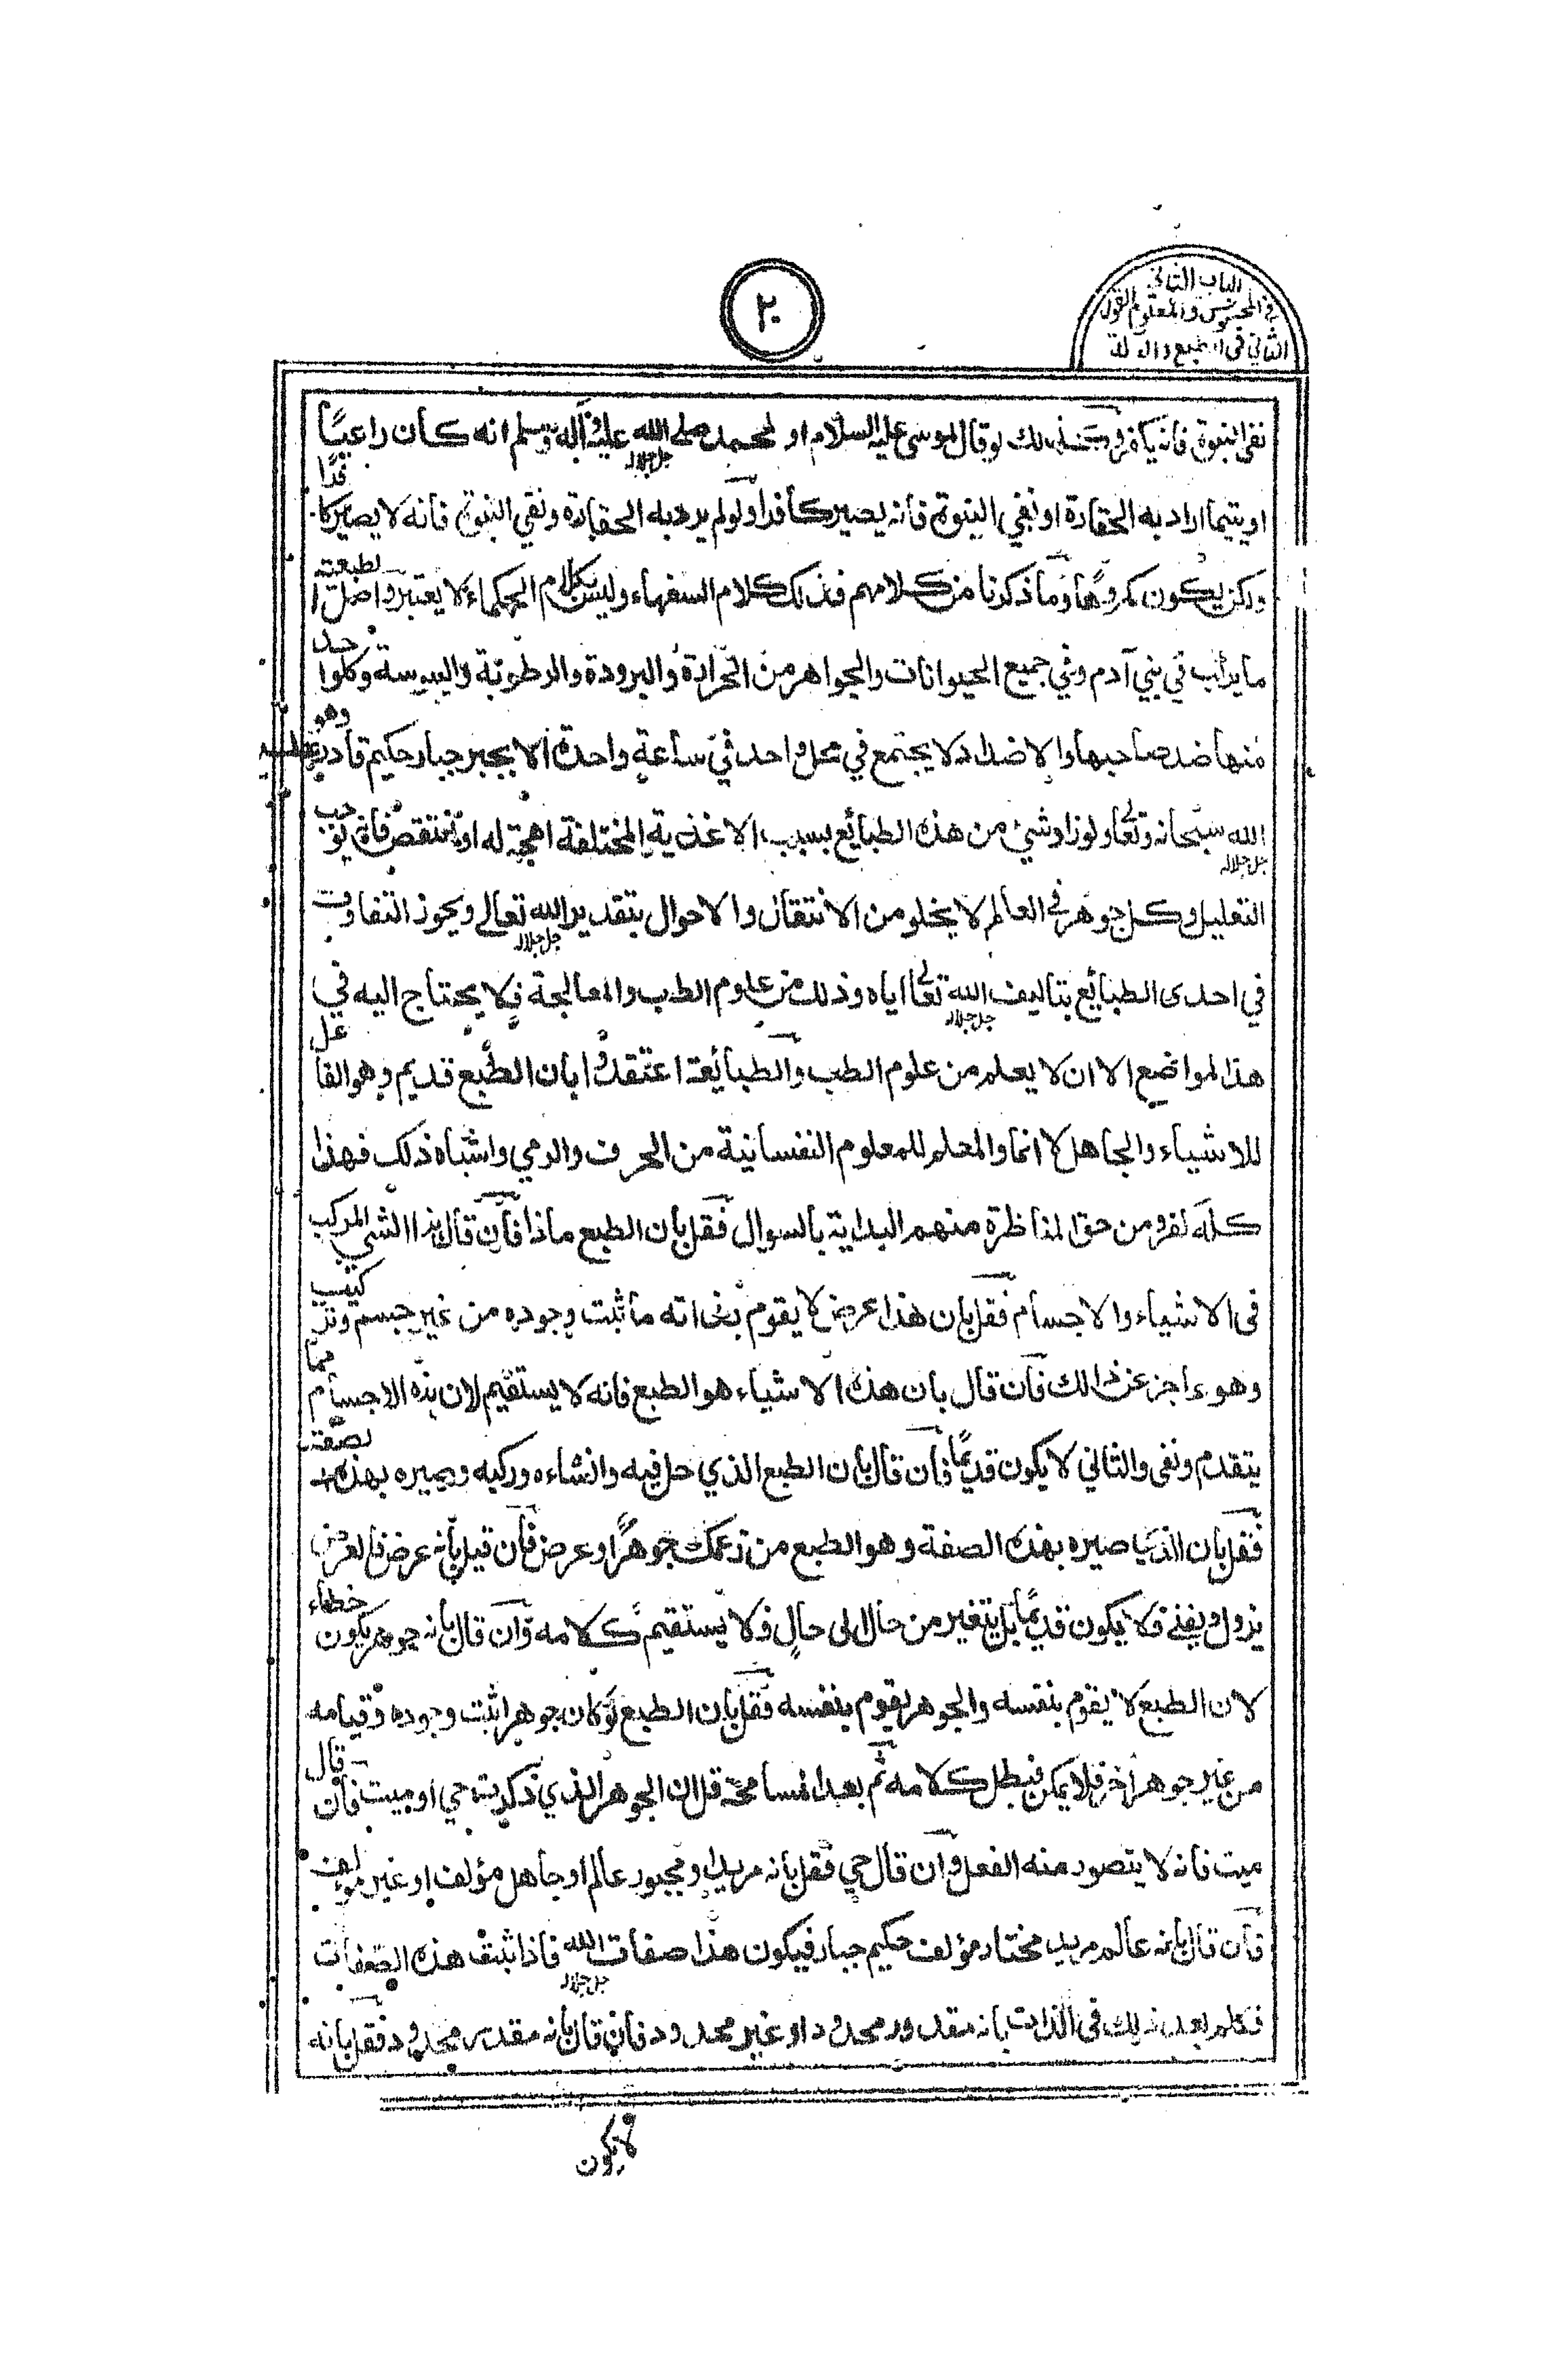 الباب الثاني
في المحسوس والمعلوم القول
الثاني في الطبع والدلالة
٢٠
نفي النبوة فانه يكفر وكذلك لو قال لموسى عليه السلام او لمحمد صلى الله عليه وآله وسلم انه كان راعيًا
او يتيما اراد به الحقارة او نفي النبوة فانه يصير كافرا ولو لم يرد به الحقارة ونفي النبوة فانه لا يصير كافرًا
ولكن يكون مكروهًا وما ذكرنا من كلامهم فذلك كلام السفهاء وليس بكلام الحكماء لا يعتبر واصل الطبعة
ما يركب في بني آدم وفي جميع الحيوانات والجواهر من الحرارة والبرودة والرطوبة واليبوسة وكلواحد
منها ضد صاحبها والاضداد لا يجتمع في محل واحد في ساعة واحدة الا بجبر جبار حكيم قادر وهو
الله جل جلاله سبحانه وتعالى ولو زاد شيئ من هذه الطبائع بسبب الاغذية المختلفة اهجة له او تنتقص فانه يوجب
التعليل وكل جوهر في العالم لا يخلو من الانتقال والاحوال بتقدير الله جل جلاله تعالى ويجوز التفاوت
في احدى الطبائع بتاليف الله جل جلاله تعالى اياه وذلك من علوم الطب والمعالجة فلا يحتاج اليه في
هذا لمواضع الا ان لا يعلم من علوم الطب والطبائعة اعتقدوا بان الطبع قديم وهو الفاعل
للاشياء والجاهل لا انما والمعلم للمعلوم النفسانية من الحرف والرمي واشباه ذلك فهذا
كله لفر ومن حق المناظرة منهم البداية بالسوال فقل بان الطبع ماذا فان قال بذا الشي المركب
فى الاشياء والاجسام فقل بان هذا عرض لا يقوم بذاته ما ثبت وجوده من غير جسم وتركيب
وهو عاجز عن ذالك فان قال بان هذه الاشياء هو الطبع فانه لا يستقيم لان بذه الاجسام مما
يتقدم ونفى والثاني لا يكون قديمًا فان قال بان الطبع الذي حل فيه وانشاءه وركبه وصيره بهذه لصفة
فقل بان الذي صيره بهذه الصفة وهو الطبع من زعمك جوهرًا وعرض فان قيل بأنه عرض فالعرض
يزول ويفنى فلا يكون قديمًا بل يتغير من حال الى حال فلا يستقيم كلامه وان قال بأنه جوهر يكون خطاء
لان الطبع لا يقوم بنفسه والجوهر يقوم بنفسه فقل بان الطبع لو كان جوهرا ثبت وجوده وقيامه
من غير جوهر آخر فلا يمكن فبطل كلامه ثم بعد المسامحة قل ان الجوهر الذي ذكرته حي او ميت فان قال
ميت فانه لا يتصور منه الفعل وان قال حي فقل بأنه مريد او مجبور عالم او جاهل مؤلف او غير مؤلف
فان قال بانه عالم مريد مختار مؤلف حكيم جبار فيكون هذا صفات الله جل جلاله فاذا ثبت هذه الصفات
فكلم بعد ذلك فى الذات بانه مقدور محدود او غير محدود فان قال بأنه مقدر محدود فقل بانه
لا يكون